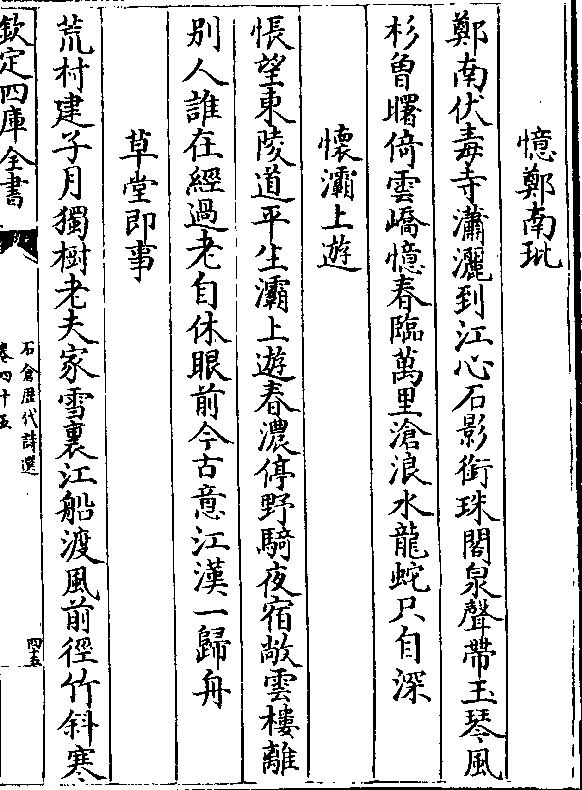 憶鄭南玭
鄭南伏毒寺瀟灑到江心石影銜珠閣泉聲帶玉琴風
杉曾曙倚雲嶠憶春臨萬里滄浪水龍蛇只自深
懷灞上遊
悵望東陵道平生灞上遊春濃停野騎夜宿敞雲樓離
别人誰在經過老自休眼前今古意江漢一歸舟
草堂即事
荒村建子月獨樹老夫家雪裏江船渡風前徑竹斜寒
欽定四庫全書
石倉歴代詩選
卷四十五
四五